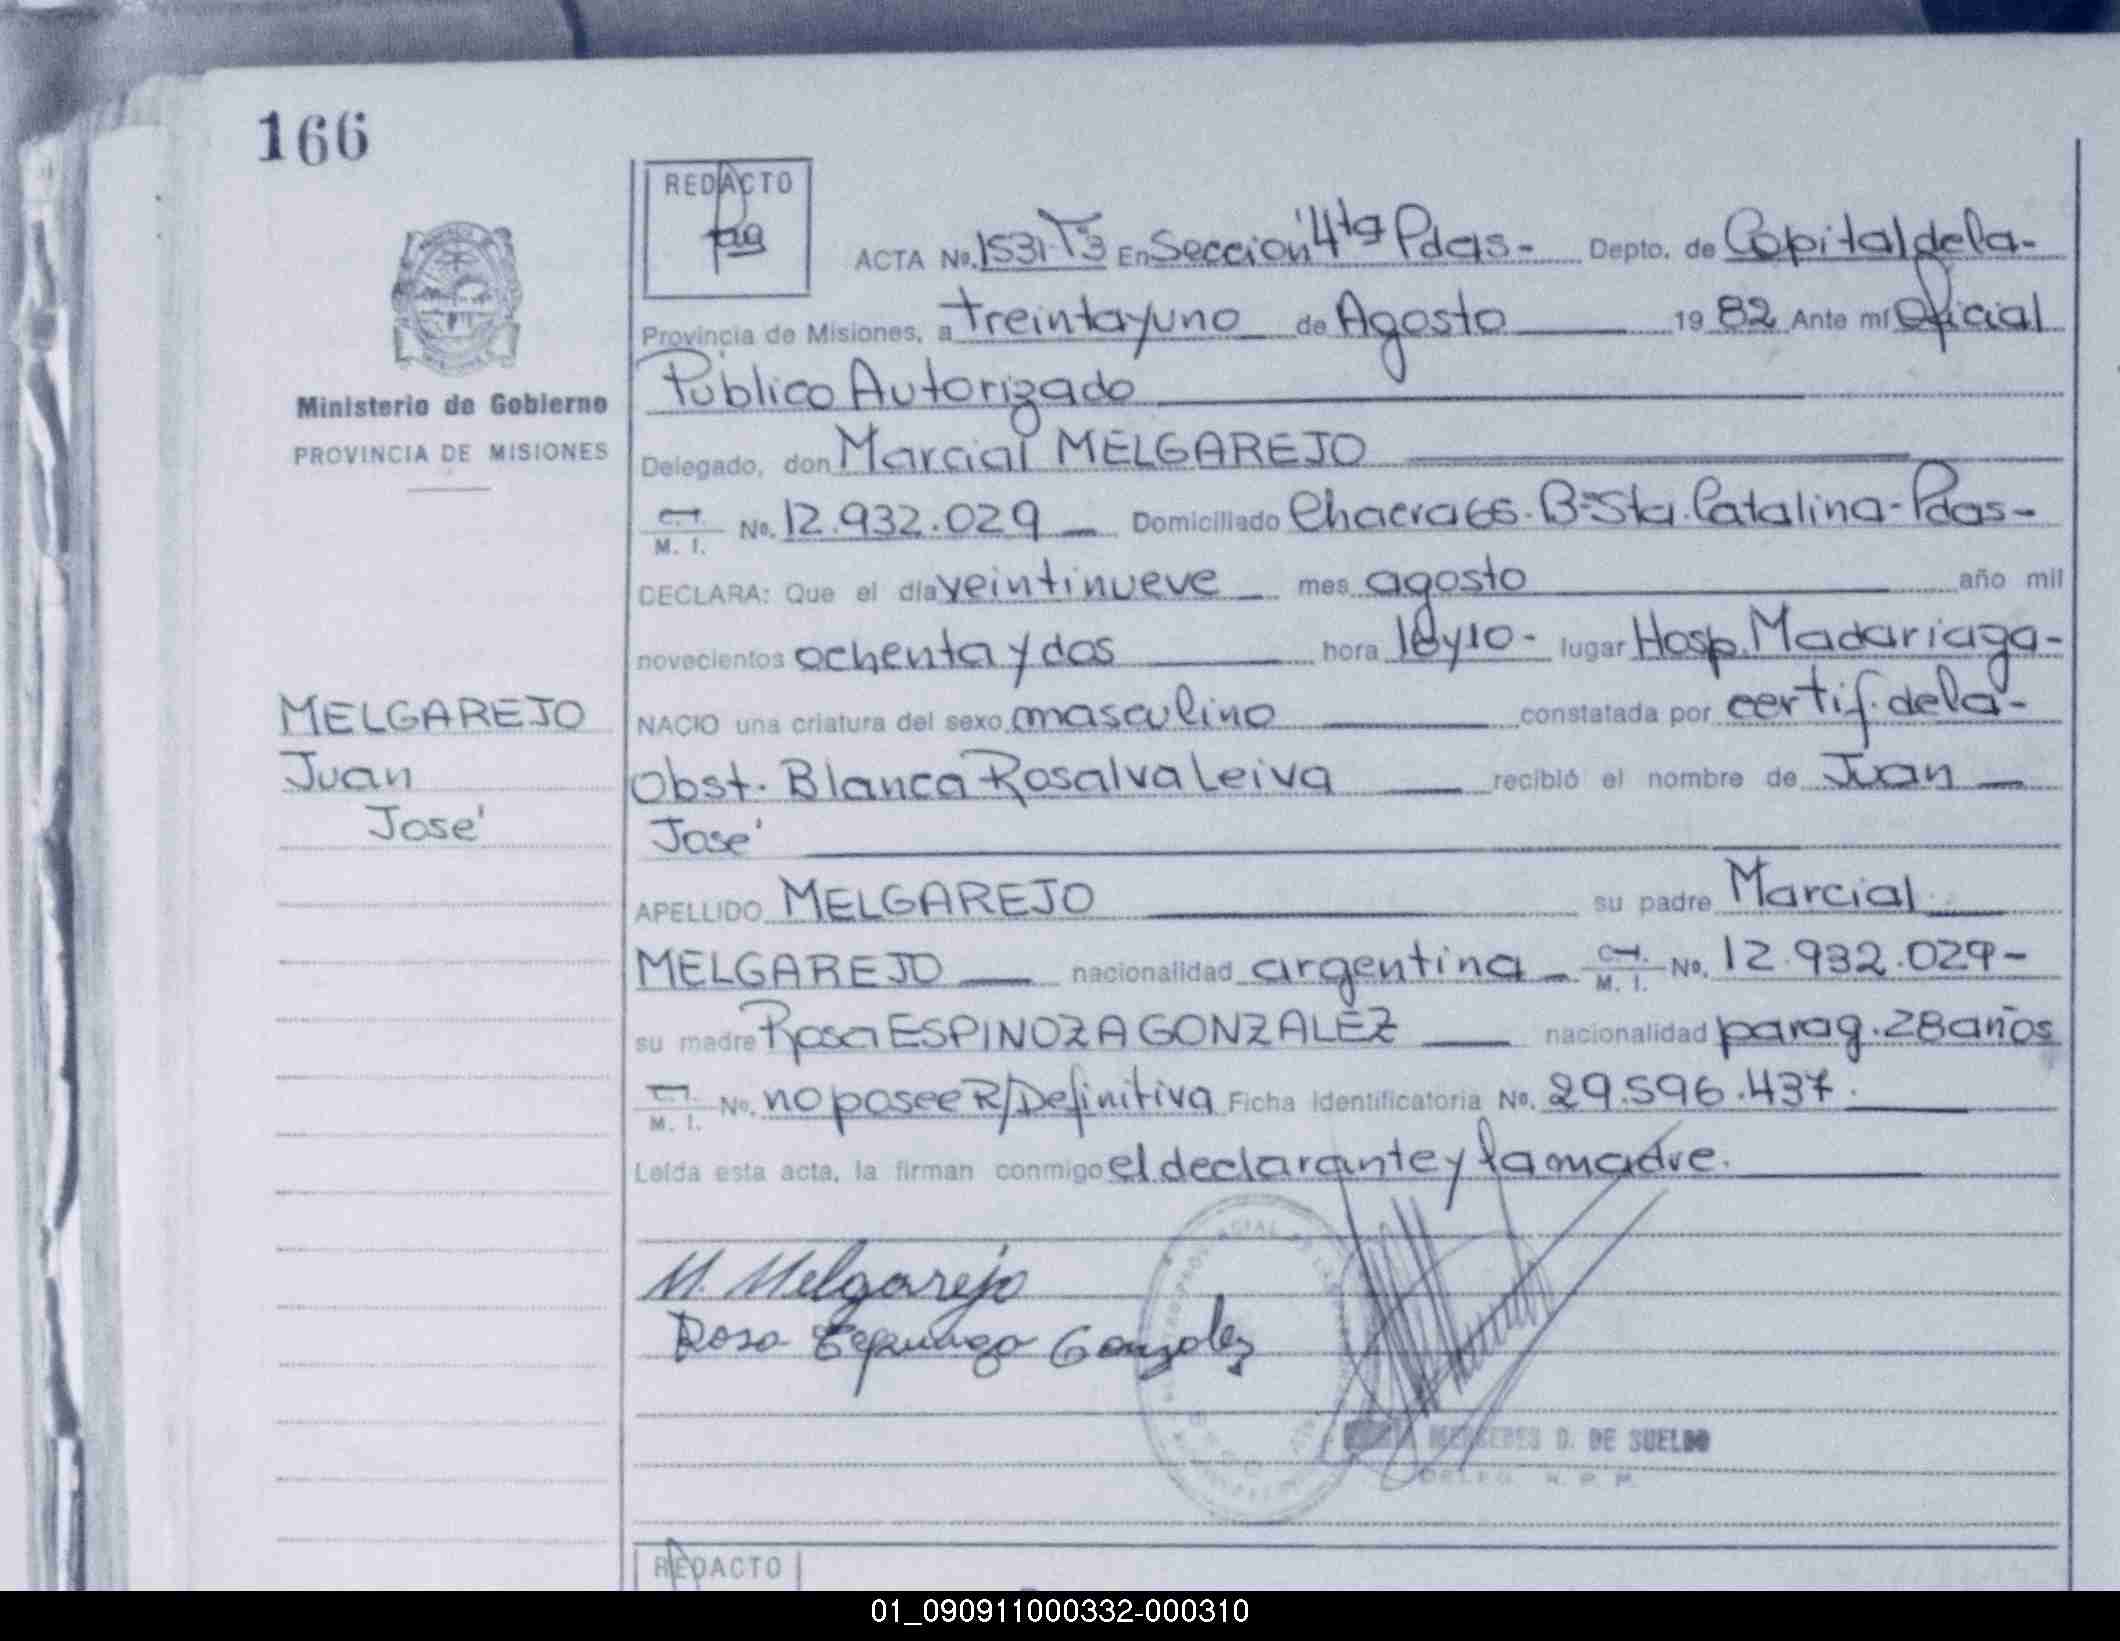 166
REDACTO
ACTA No. 1531-T3 En Sección 4ta Pdas- Depto. de Capital de la-
Provincia de Misiones, a treinta y uno de Agosto 19 82 Ante mí Oficial
Público Autorizado
Ministerio de Gobierno
PROVINCIA DE MISIONES
Delegado, don Marcial MELGAREJO
C.I. M. I. No. 12.932.029 Domiciliado Chacra 66. B° Sta. Catalina- Pdas-
DECLARA: Que el día veintinueve mes agosto año mil
novecientos ochenta y dos hora 18 y 10- lugar Hosp. Madariaga-
MELGAREJO
Juan
José
NACIO una criatura del sexo masculino constatada por certif. de la-
Obst. Blanca Rosalva Leiva recibió el nombre de Juan
José
APELLIDO MELGAREJO su padre Marcial
MELGAREJO nacionalidad argentina C.I. M. I. No. 12.932.029-
su madre Rosa ESPINOZA GONZALEZ nacionalidad parag. 28 años
C.I. M. I. No. no posee R/Definitiva Ficha Identificatoria No. 29.596.437.
Leída esta acta, la firman conmigo el declarante y la madre.
M. Melgarejo
Rosa Espinoza Gonzalez
MERCEDES D. DE SUELDO
DELEG. R. P. P.
REDACTO
01_090911000332-000310